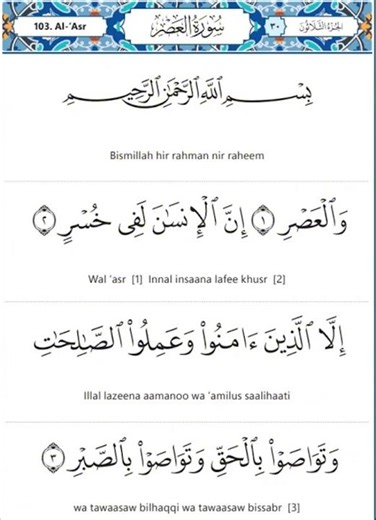 103. Al-'Asr سُورَةُ العَصْرِ ٣٠ الجُزْءُ الثَّلَاثُونَ
بِسْمِ ٱللَّهِ ٱلرَّحْمَٰنِ ٱلرَّحِيمِ
Bismillah hir rahman nir raheem
وَٱلْعَصْرِ ١ إِنَّ ٱلْإِنسَٰنَ لَفِى خُسْرٍ ٢
Wal 'asr [1] Innal insaana lafee khusr [2]
إِلَّا ٱلَّذِينَ ءَامَنُوا۟ وَعَمِلُوا۟ ٱلصَّٰلِحَٰتِ
Illal lazeena aamanoo wa 'amilus saalihaati
وَتَوَاصَوْا۟ بِٱلْحَقِّ وَتَوَاصَوْا۟ بِٱلصَّبْرِ ٣
wa tawaasaw bilhaqqi wa tawaasaw bissabr [3]